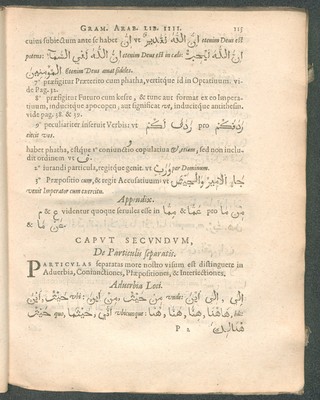 GRAM. ARAB. LIB. IIII. 115
cuius subiectum ante se habet ان vt ان اللّه لقدير etenim Deus est
potens: ان اللّه يحب
etenim Deus amat fideles.
6° præfigitur Præterito cum phatha, verritque id in Optatiuum. vi-
de Pag. 32.
7° præfigitur Futuro cum kesre, & tunc aut format ex eo Impera-
tiuum, inducitque apocopen, aut significat vt, inducitque antithesin.
vide pag. 38. & 57.
9° peculiariter inseruit Verbis: vt ردف لكم pro ردفكم
habet phatha, estque 1° coniunctio copulatiua &, etiam, sed non inclu-
dit ordinem vt ف.
2° iurandi particula, regitque genit. vt ورب per Dominum.
3° Præpositio cum, & regit Accusatiuum: vt جاء الامير والجيش
venit Imperator cum exercitu.
Appendix.
م & ع videntur quoque seruiles esse in مما & عما pro من ما
& عن ما.
CAPVT SECVNDVM,
De Particulis separatis.
PARTICVLAS separatas more nostro visum est distinguere in
Aduerbia, Coniunctiones, Præpositiones, & Interiectiones,
Aduerbia Loci.
اين, حيث vbi: من اين, من حيث vnde: الى اين, الى
حيث quo, اينما, حيثما vbicunque: هنا, هنا, هاهنا hîc,
P 2 هنالك